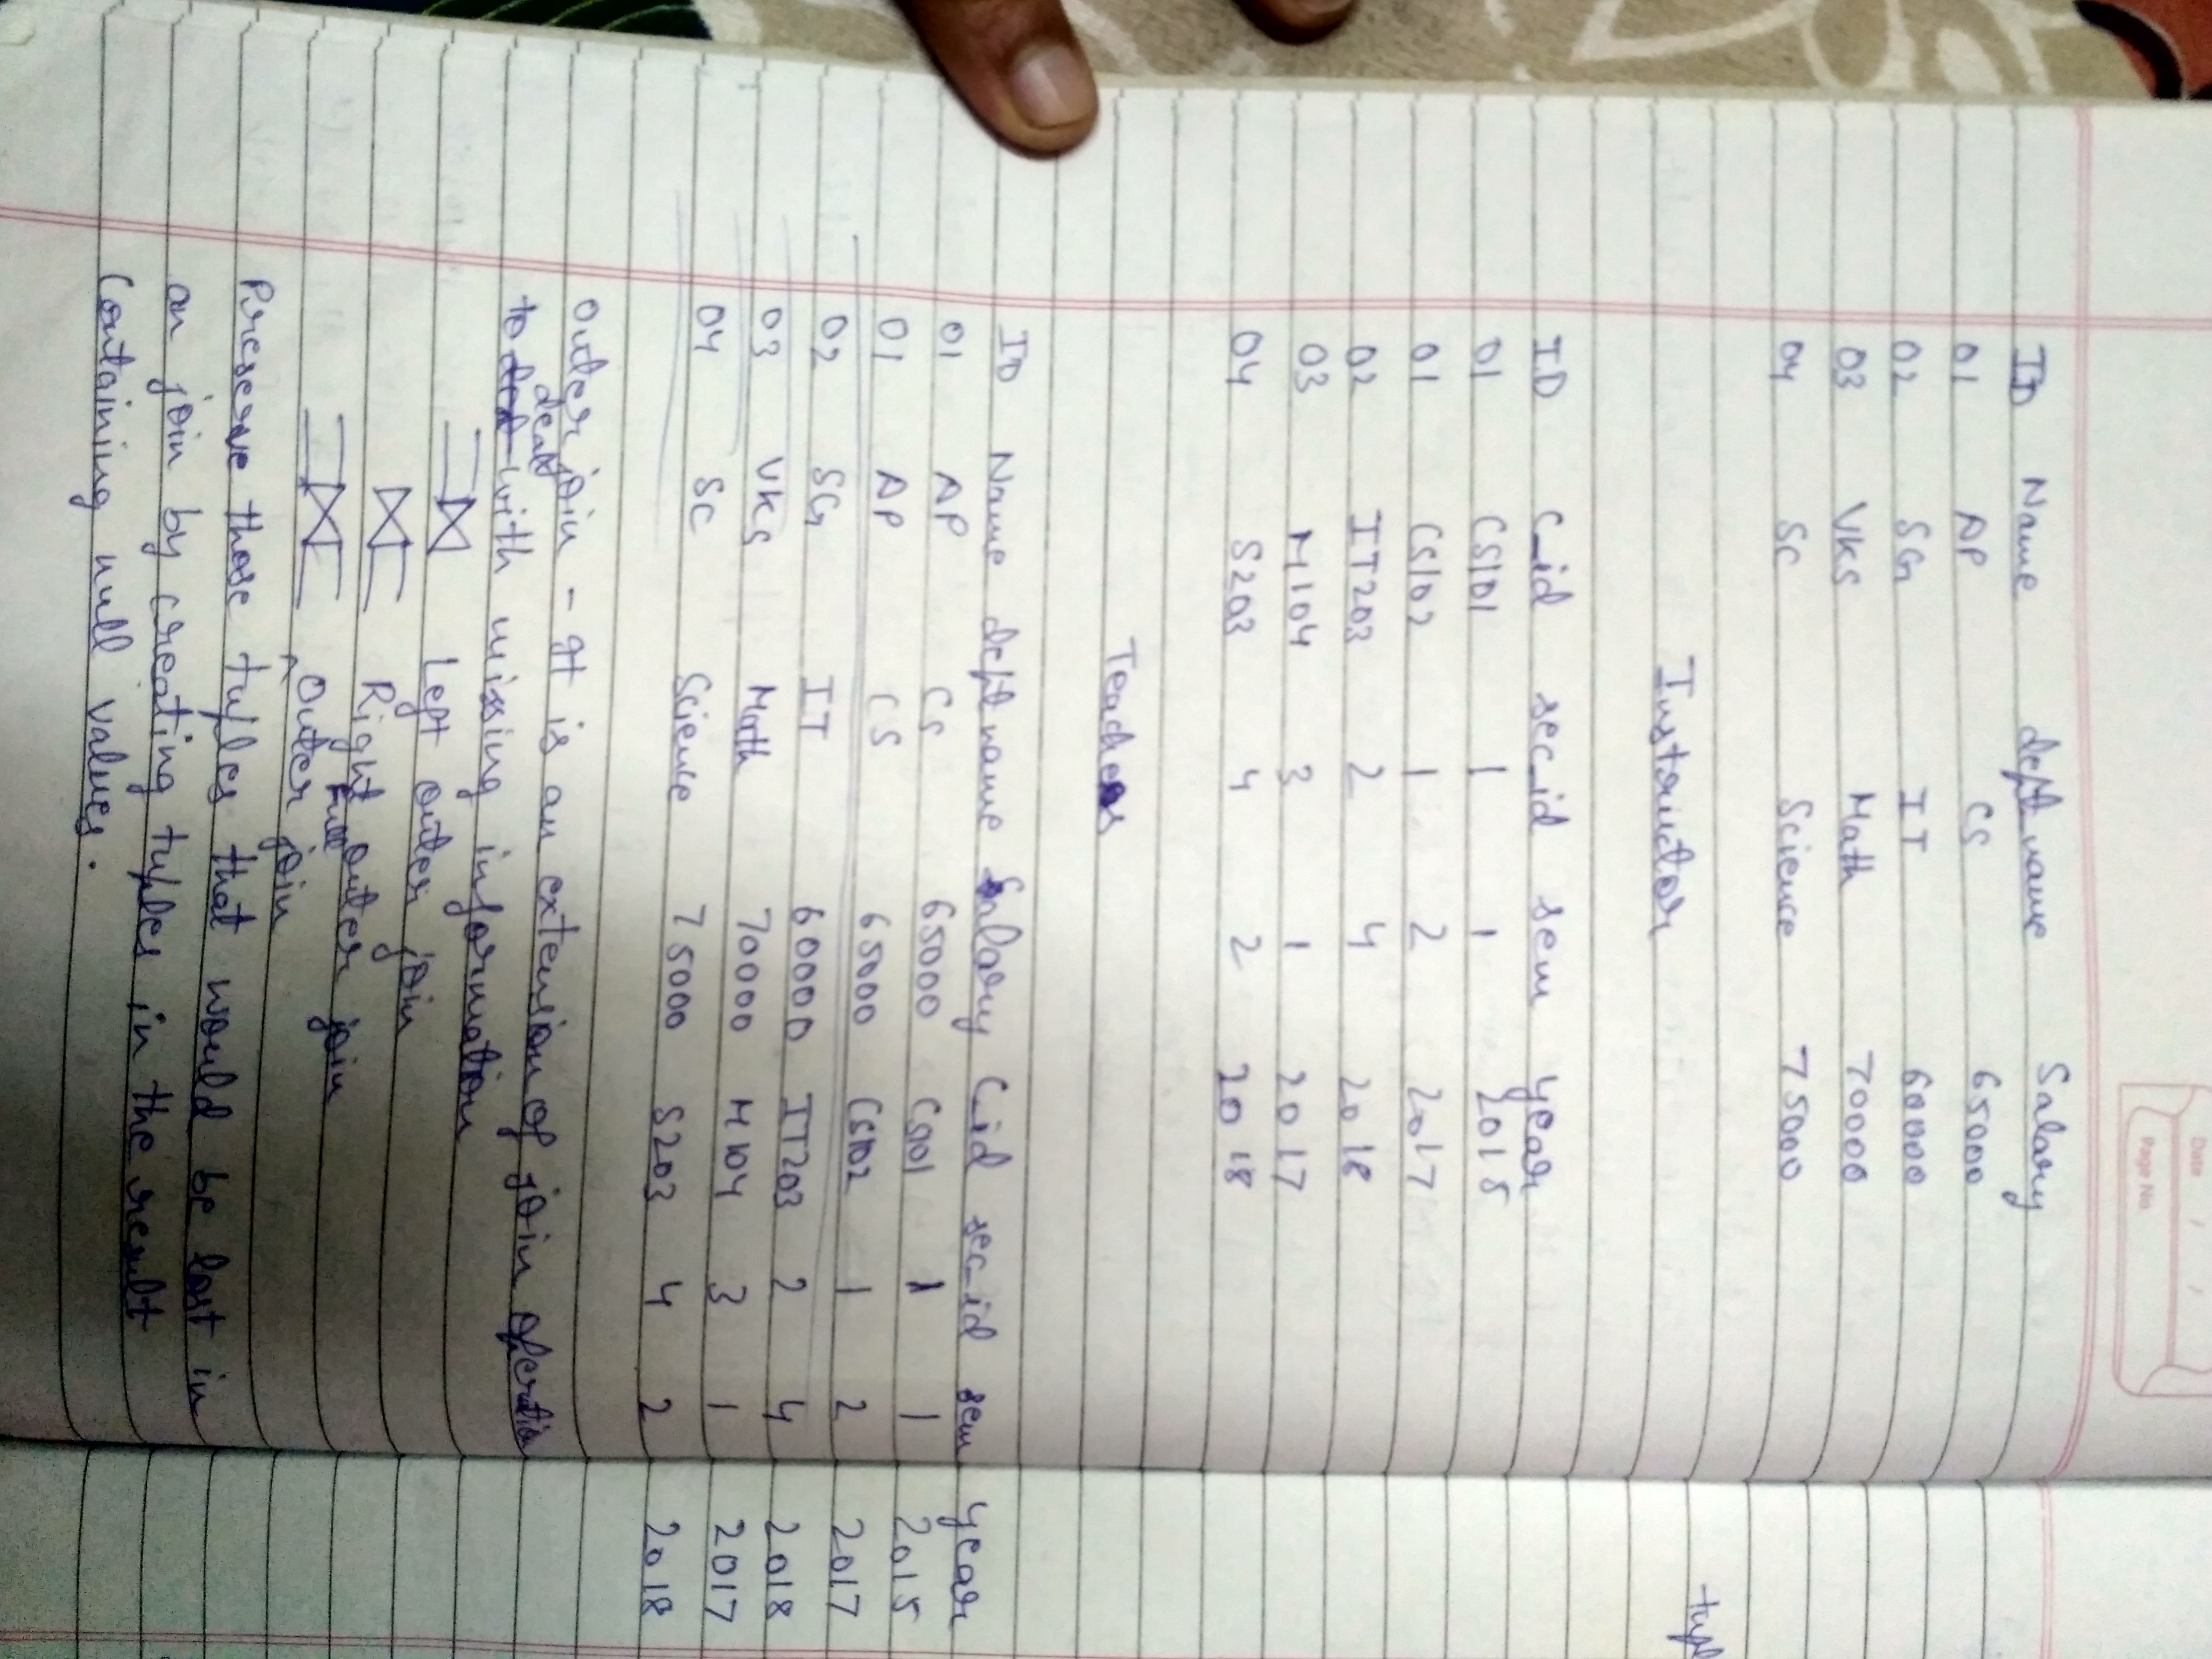 Date / /
Page No.
ID Name dept name Salary
01 AP CS 65000
02 SG IT 60000
03 VKS Math 70000
04 SC Science 75000
Instructor
ID C_id sec_id sem year
01 CS101 1 1 2015
01 CS102 1 2 2017
02 IT203 2 4 2018
03 M104 3 1 2017
04 S203 4 2 2018
Teaches
ID Name dept name Salary C_id sec_id sem year
01 AP CS 65000 CS101 1 1 2015
01 AP CS 65000 CS102 1 2 2017
02 SG IT 60000 IT203 2 4 2018
03 VKS Math 70000 M104 3 1 2017
04 SC Science 75000 S203 4 2 2018
Outer join - It is an extension of join operation
to deal with missing information
⟕ Left outer join
⟖ Right outer join
⟗ Full Outer join
Preserve those tuples that would be lost in
an join by creating tuples in the result
Containing null values.
tupl